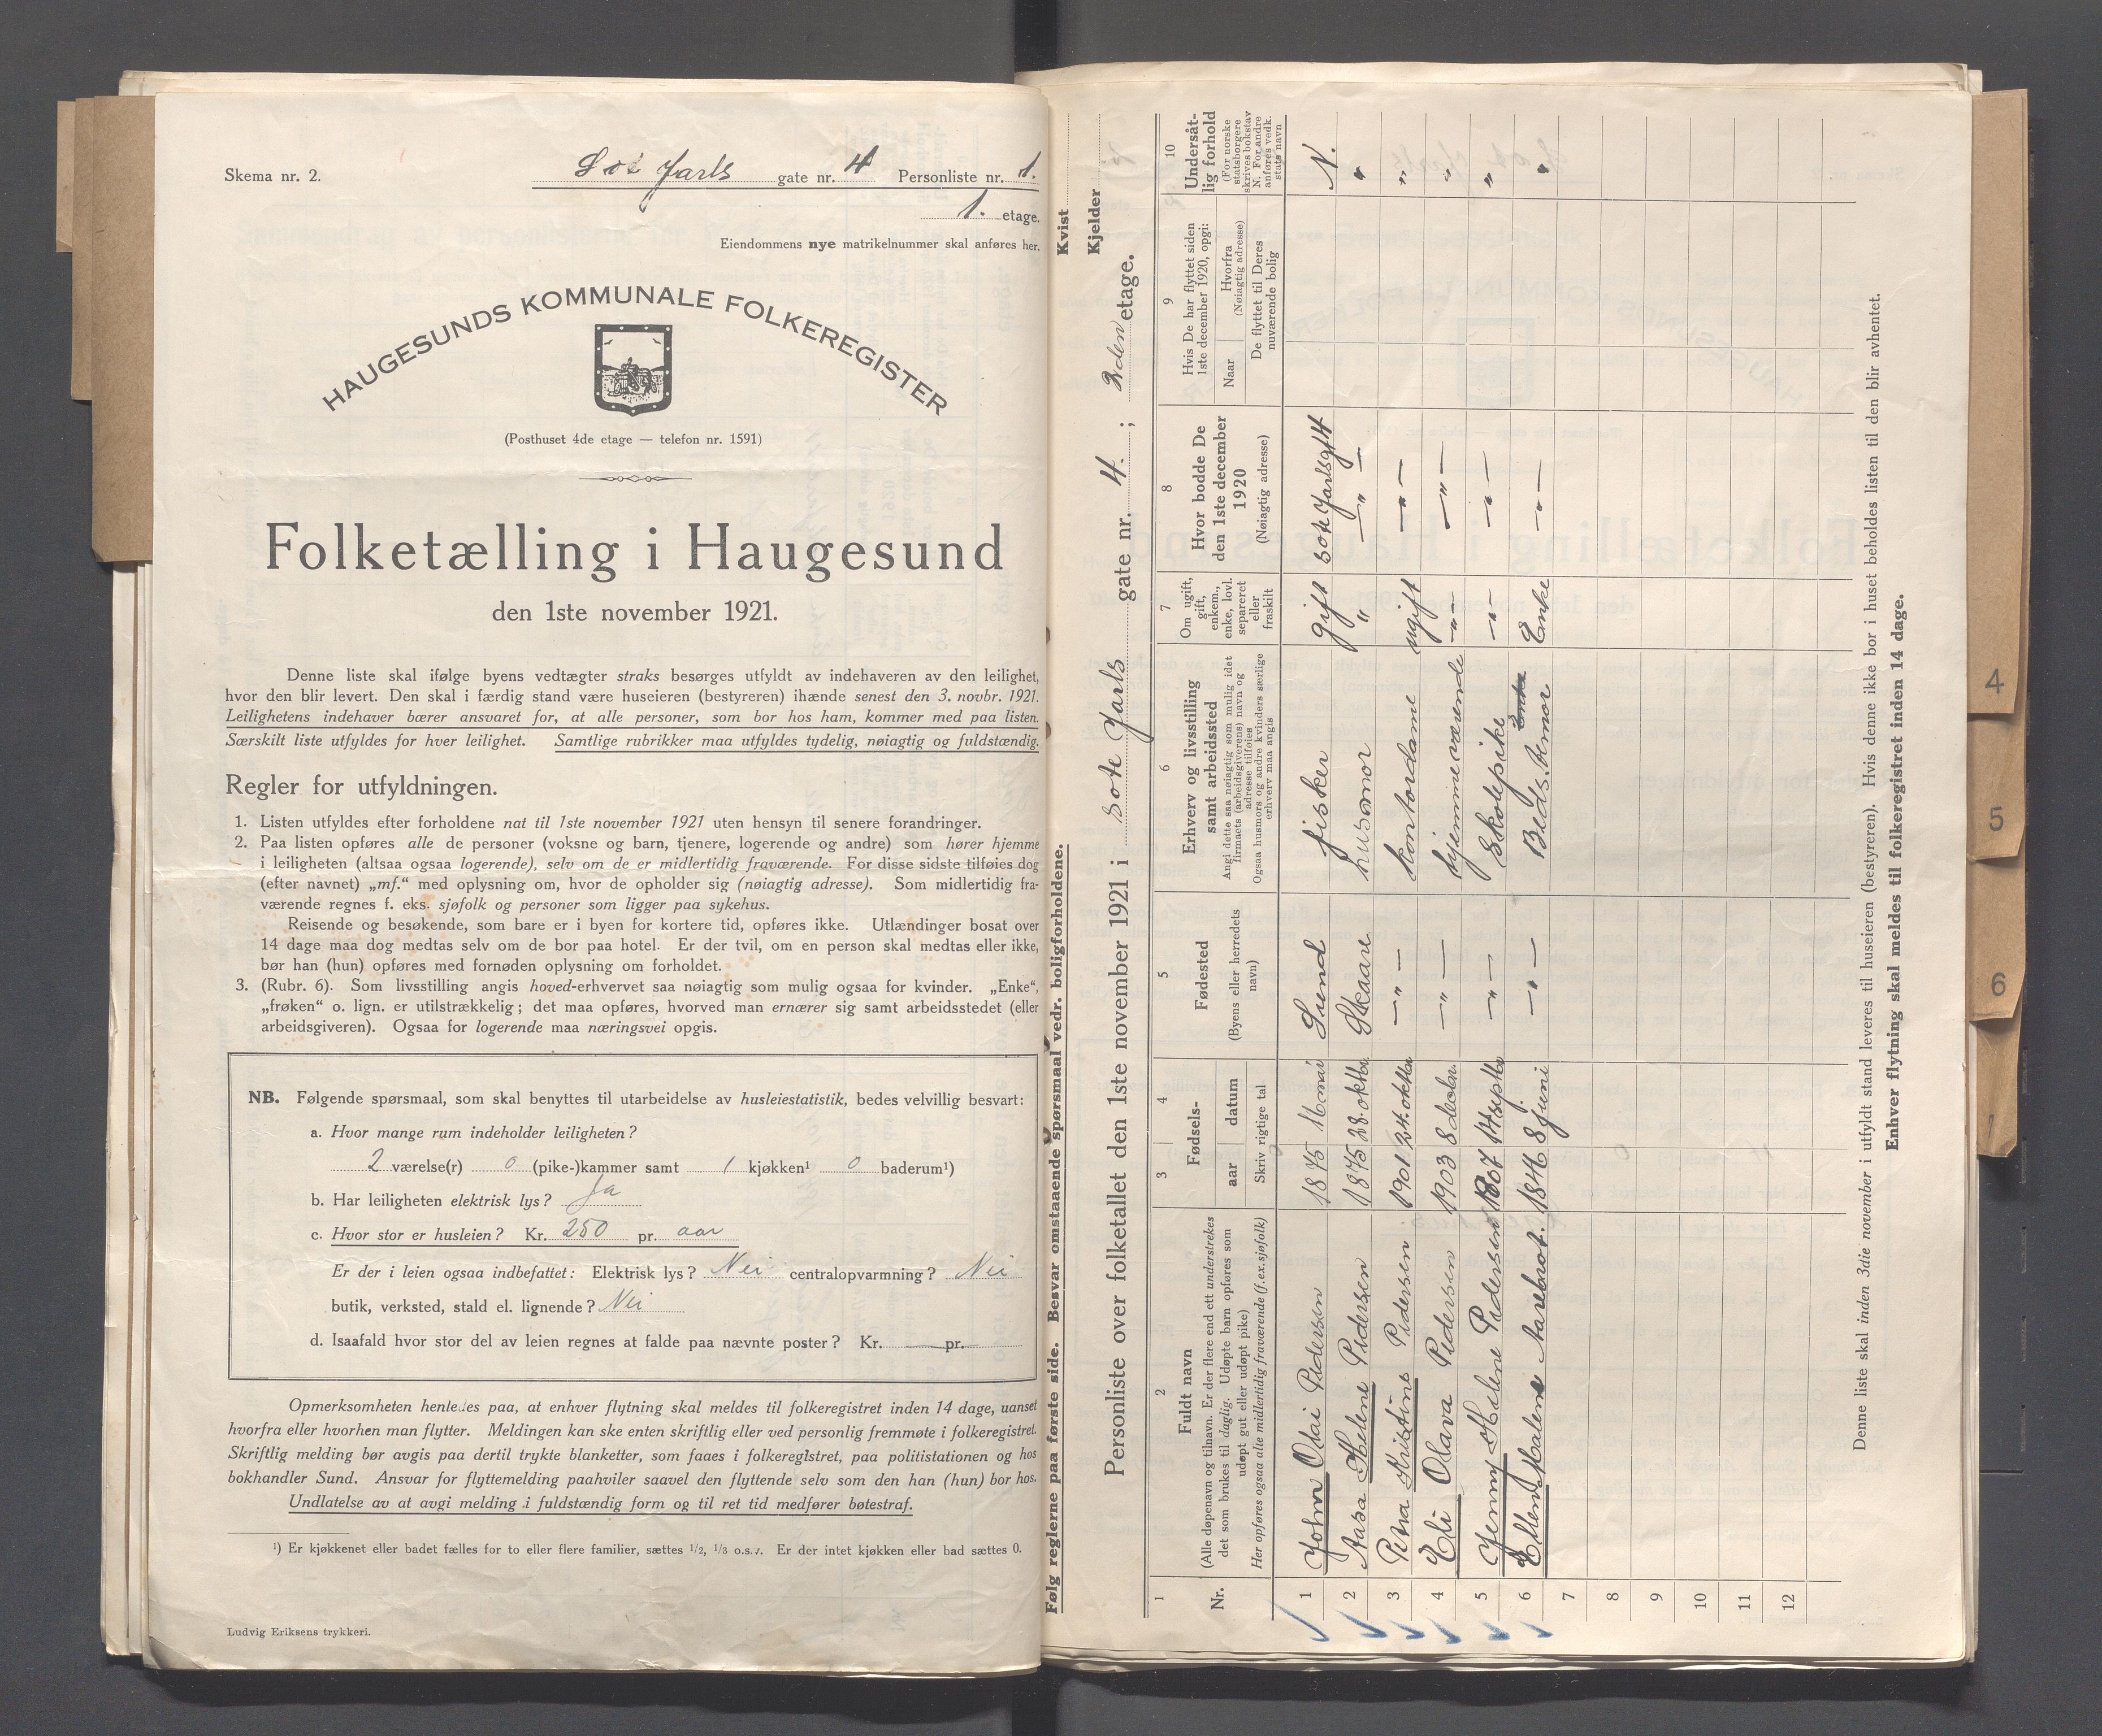 Skema nr. 2.
Sot Jarls gate nr. 4 Personliste nr. 1.
1. etage.
Eiendommens nye matrikelnummer skal anføres her.
HAUGESUNDS KOMMUNALE FOLKEREGISTER
(Posthuset 4de etage — telefon nr. 1591)
Folketælling i Haugesund
den 1ste november 1921.
Denne liste skal ifølge byens vedtægter straks besørges utfyldt av indehaveren av den leilighet,
hvor den blir levert. Den skal i færdig stand være huseieren (bestyreren) ihænde senest den 3. novbr. 1921.
Leilighetens indehaver bærer ansvaret for, at alle personer, som bor hos ham, kommer med paa listen.
Særskilt liste utfyldes for hver leilighet. Samtlige rubrikker maa utfyldes tydelig, nøiagtig og fuldstændig.
Regler for utfyldningen.
1. Listen utfyldes efter forholdene nat til 1ste november 1921 uten hensyn til senere forandringer.
2. Paa listen opføres alle de personer (voksne og barn, tjenere, logerende og andre) som hører hjemme
i leiligheten (altsaa ogsaa logerende), selv om de er midlertidig fraværende. For disse sidste tilføies dog
(efter navnet) „mf.“ med oplysning om, hvor de opholder sig (nøiagtig adresse). Som midlertidig fra-
værende regnes f. eks. sjøfolk og personer som ligger paa sykehus.
Reisende og besøkende, som bare er i byen for kortere tid, opføres ikke. Utlændinger bosat over
14 dage maa dog medtas selv om de bor paa hotel. Er der tvil, om en person skal medtas eller ikke,
bør han (hun) opføres med fornøden oplysning om forholdet.
3. (Rubr. 6). Som livsstilling angis hoved-erhvervet saa nøiagtig som mulig ogsaa for kvinder. „Enke“,
„frøken“ o. lign. er utilstrækkelig; det maa opføres, hvorved man ernærer sig samt arbeidsstedet (eller
arbeidsgiveren). Ogsaa for logerende maa næringsvei opgis.
NB. Følgende spørsmaal, som skal benyttes til utarbeidelse av husleiestatistik, bedes velvillig besvart:
a. Hvor mange rum indeholder leiligheten?
2 værelse(r) 0 (pike-)kammer samt 1 kjøkken¹ 0 baderum¹)
b. Har leiligheten elektrisk lys? Ja
c. Hvor stor er husleien? Kr. 250 pr. aar
Er der i leien ogsaa indbefattet: Elektrisk lys? Nei centralopvarmning? Nei
butik, verksted, stald el. lignende? Nei
d. Isaafald hvor stor del av leien regnes at falde paa nævnte poster? Kr. — pr.
Opmerksomheten henledes paa, at enhver flytning skal meldes til folkeregistret inden 14 dage, uanset
hvorfra eller hvorhen man flytter. Meldingen kan ske enten skriftlig eller ved personlig fremmøte i folkeregistret.
Skriftlig melding bør avgis paa dertil trykte blanketter, som faaes i folkeregistret, paa politistationen og hos
bokhandler Sund. Ansvar for flyttemelding paahviler saavel den flyttende selv som den han (hun) bor hos.
Undlatelse av at avgi melding i fuldstændig form og til ret tid medfører bøtestraf.
¹) Er kjøkkenet eller badet fælles for to eller flere familier, sættes 1/2, 1/3 o.s.v. Er der intet kjøkken eller bad sættes 0.
Ludvig Eriksens trykkeri.
Følg reglerne paa første side. Besvar omstaaende spørsmaal vedr. boligforholdene.
Kvist
Kjelder
Personliste over folketallet den 1ste november 1921 i Sote Jarls gate nr. 4. ; 2den etage.
1 2 3 4 5 6 7 8 9 10
Nr.
Fuldt navn
(Alle døpenavn og tilnavn. Er der flere end ett understrekes
det som brukes til daglig. Udøpte barn opføres som
udøpt gut eller udøpt pike)
Her opføres ogsaa alle midlertidig fraværende (f.ex. sjøfolk)
Fødsels-
aar datum
Skriv rigtige tal
Fødested
(Byens eller herredets
navn)
Erhverv og livsstilling
samt arbeidssted
Angi dette saa nøiagtig som mulig idet
firmaets (arbeidsgiverens) navn og
adresse tilføies
Ogsaa husmors og andre kvinders særlige
erhverv maa angis
Om ugift,
gift,
enkem.,
enke, lovl.
separeret
eller
fraskilt
Hvor bodde De
den 1ste december
1920
(Nøiagtig adresse)
Hvis De har flyttet siden
1ste december 1920, opgi:
Naar
Hvorfra
(Nøiagtig adresse)
De flyttet til Deres
nuværende bolig
Undersåt-
lig forhold
(For norske
statsborgere
skrives bokstav
N. For andre
anføres vedk.
stats navn
1 John Osai Pedersen 1875 16 mai Sund fisker gift Sote Jarlsgt 4 N.
2 Aasa Helene Pedersen 1875 28. oktbr Skaare husmor " — " — "
3 Petra Kristine Pedersen 1901 24. oktbr — " — kontordame ugift — " — "
4 Eli Olava Pedersen 1903 8 decbr — " — hjemmeværende — " — — " — "
5 Jenny Helene Pedersen 1907 14 septbr — " — Skolepike — " — — " — "
6 Ellen Malene Aarebrot. 1846 8 juni — " — Bedstemor Enke — " — "
7
8
9
10
11
12
Denne liste skal inden 3die november i utfyldt stand leveres til huseieren (bestyreren). Hvis denne ikke bor i huset beholdes listen til den blir avhentet.
Enhver flytning skal meldes til folkeregistret inden 14 dage.
4
5
6